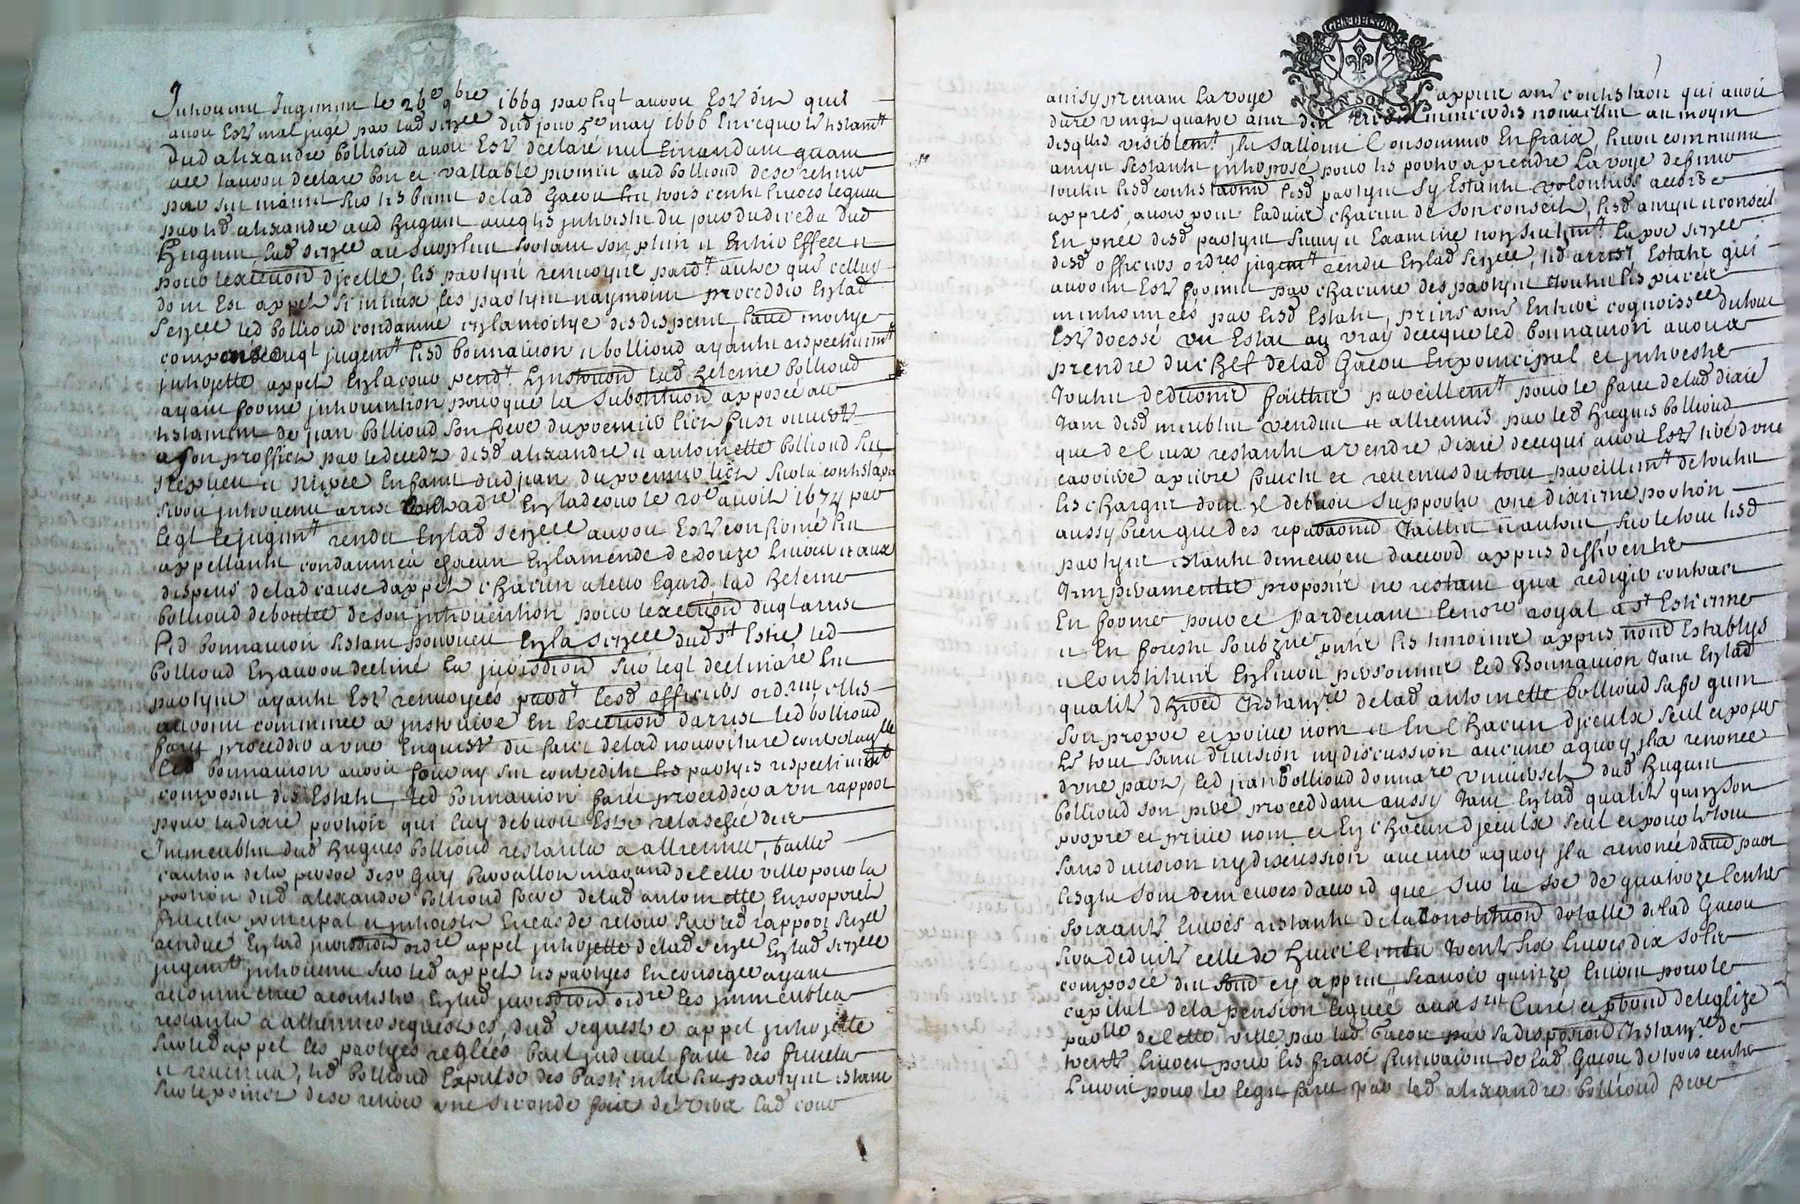 Intervenu Jugement le 26e 9bre 1669 par leql auroit Esté dit quil
auoit Esté mal jugé par lad senee dud jour 5e may 1666 en ce que le testamt
Dud alixandre bollioud auoit Est declaré nul Emandant quant
a ce lauroit declaré bon et vallable permis aud bollioud de se retenir
par ses mains sur les biens de lad Gacou les trois cents liures legues
par led alixandre aud hugues auec les interests du jour du deceds dud
hugues lad senee au surplus sortant son plein et Entier Effect et
pour lexecution dicelle les partyes renuoyee pardt autre que celluy
dont Est appel si mieux les partyes naymoint proceder En lad
Senee led bollioud condamné En la moitye des despens lautre moitye
compensé duql jugemt lesd bonnauion et bollioud ayants respectiuemt
interjetté appel En la cour pendt Linstance lad heleine bollioud
ayant formé interuention pour que la Substitution apposée au
testament de jean bollioud son frere du premier lict fust ouuerte
a son proffict par le deceds desd alixandre et antoinette bollioud
nepueu et niepce Enfants dud jean du premier lict Sur la contesta^on
seroit interuenu arrest En lad cour le 20e auril 1674 par
leql le jugemt rendu En lad senee auroit Esté confirmé les
appellants condamnés chacun En lamende de douze liures et aux
despens de la cause dappel chacun a leur Egard lad heleine
bollioud deboutée de son interuention pour lexecution duql arrest
led bonnauion sestant pourueu En la senee dud st Estie led
bollioud En auroit decliné la jurisdiction Sur leql declinatre les
partyes ayants Esté renuoyees pardt lesd officiers ordres elles
auroint commencé a instruire En Execution darrest led bollioud
faict proceder a une Enqueste du faict de lad nourriture contre laqlle
led bonnauion auroit fourny ses contredits les partyes respectiuemt
composé des Estats, led bonnauion faict proceder a un rapport
pour la dixe portion qui luy debuoit Estre relaschée des
Immeubles dud hugues bollioud restants a alliener, baillé
caution de la personne de sr Guy bauallon marchand de cette ville pour la
portion dud alexandre bollioud frere de lad antoinette Enproprieté
fruicts principal et interests En cas de retour Sur led rapport Sence
rendue En lad jurisdiction ordre appel interjetté de lad senee En lad senee
jugemt interuenu Sur led appel les partyes En consequce ayant
recommencé a contester En lad jurisdiction ordre les immeubles
restants a alliener sequestrés, dud sequestre appel interjetté
Sur led appel les partyes reglées bail judiciel faict des fruicts
et reuenus, led bollioud Expulsé des bastiments les partyes estant
Sur le point de se reuoir une seconde fois deuers lad cour
ainsy prenant la voye appres une contestation qui auoit
duré vingt quatre ans
disquels visiblemt ils salloint Consommer En fraix, leurs communs
amys sestants interposé pour les porter a prendre la voye de finir
toutes lesd contestations lesd partyes sy Estants volontiers accordé
appres auoir pour ladvis chacun de son conseil, lesd amys et conseil
En pnce desd partyes Suiuy et Examiné non Seulemt la pre senee
desd officiers ordres jugemt rendu En lad senee, led arrest Estats qui
auoint Esté fournis par chacune des partyes toutes les pieces
mentionnées par lesd Estats, prins une Entiere cognoissce du tout
Esté dressé un Estat au vray de ce que led bonnauion auroit a
prendre du chef de lad Gacou En principal et interests
toutes deductions faittes pareillemt pour le faict de lad dixe
tant desd meubles vendus et alliennés par led hugues bollioud
que de ceux restants a vendre dixe de ce qui auoit Esté tiré dune
carriere a pierre fruicts et reuenus du tout pareillemt de toutes
les charges dont il debuoit supporter une dixieme portion
aussy bien que des reparations tailles et autres, Sur le tout lesd
partyes estants demeurees daccord appres differents
temperaments proposés ne restant qua rediger contract
En forme pource Pardevant le nore royal a st Estienne
et En forests soubzne, pnts les temoins appres nommés Establys
et Constitues En leurs personnes led Bonnauion tant En lad
qualité dheritier testamre de lad antoinette bollioud sa fe quen
Son propre et priué nom et En Chacun diceulx seul et pour
Le tout sans diuision ny discussion aucune a quoy il a renoncé
dune part, led jean bollioud donnatre uniuersel dud hugues
bollioud son pere proceddant aussy tant En lad qualité quen son
propre et priué nom et En chacun diceulx seul et pour le tout
sans diuision ny discussion aucune a quoy il a renoncé dautre part
lesqls sont demeurés daccord que Sur la soe de quatorze cents
soixante liures restante de la Constitution dotalle de lad Gacou
Sera deduite celle de huict cents trente six liures dix solz
composée du fond en appres, Scauoir quinze liures pour le
capital de la pension leguée aux srs Curé et pbres de leglize
paroelle de cette ville par lad Gacou par sa disposition testamre de
trente liures pour les fraix funeraires de lad Gacou de trois cents
liures pour le legat faict par led alixandre bollioud frere
GEN DE LYON
VN SOL